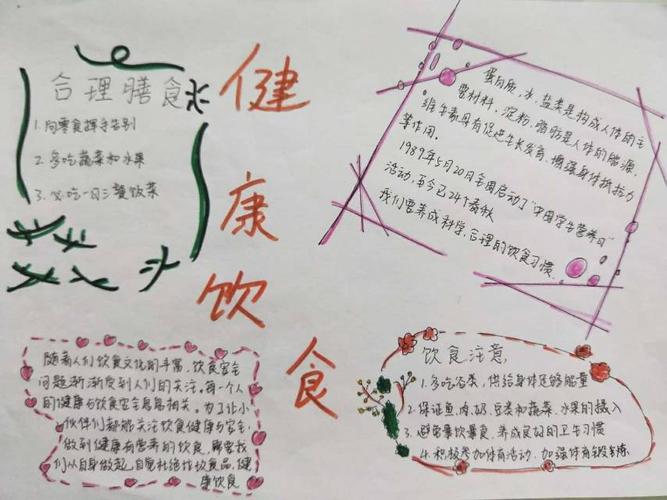 健
康
饮
食
合理膳食
1.向零食挥手告别
2.多吃蔬菜和水果
3.必吃一日三餐饭菜
蛋白质,水,盐类是构成人体的主
要材料,淀粉,脂肪是人体的能源,
维生素具有促进生长发育,增强身体抵抗力
等作用。
1989年5月20日全国启动了“中国学生营养日”
活动,至今已24个春秋
我们要养成科学,合理的饮食习惯.
随着人们饮食文化的丰富,饮食安全
问题渐渐受到人们的关注。每一个人
的健康与饮食安全息息相关。为了让小
伙伴们都能关注饮食健康与安全,
做到健康有营养的饮食,需要我
们从自身做起,自觉杜绝垃圾食品,健
康饮食
饮食注意,
1.多吃谷类,供给身体足够能量
2.保证鱼,肉,奶,豆类和蔬菜、水果的摄入
3.避免暴饮暴食,养成良好的卫生习惯
4.积极参加体育活动,加强体育锻炼